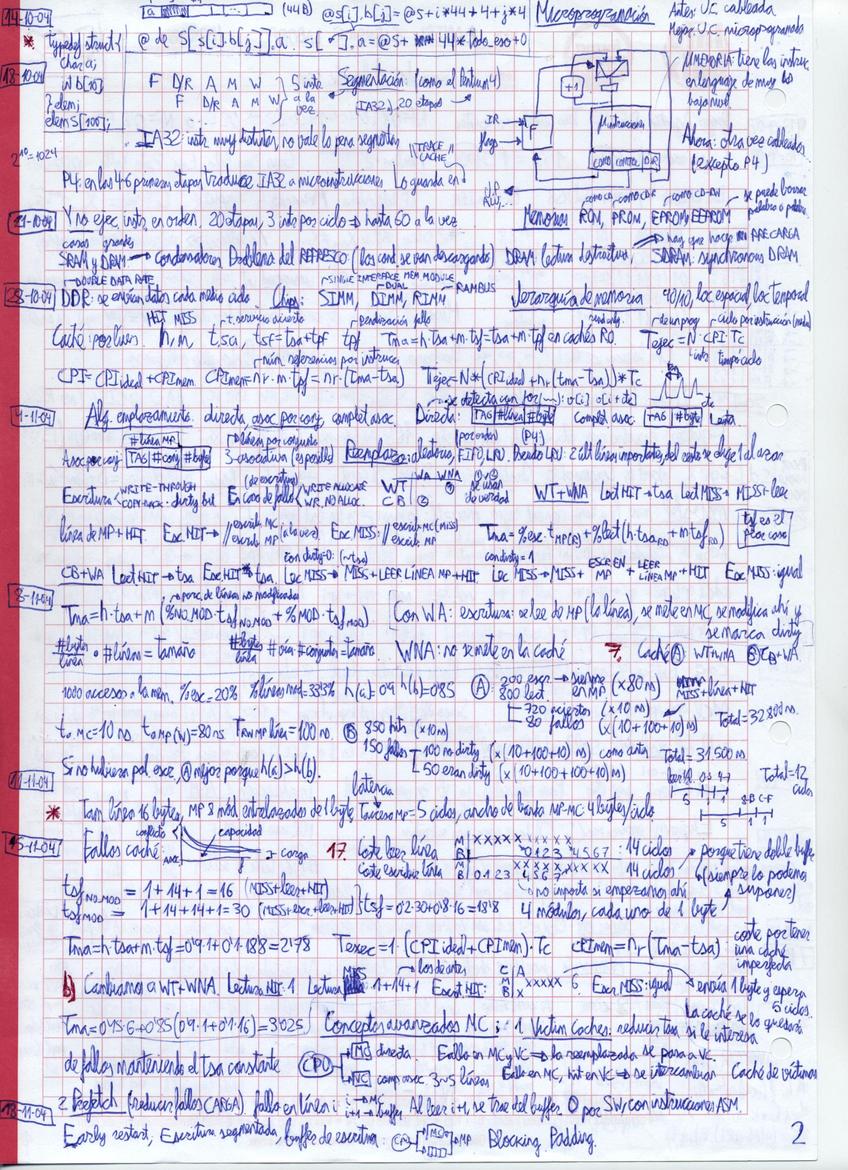 14-10-04
(44B) @s[i].b[j]=@s+i*44+4+j*4
Microprogramación
Antes: U.C. cableada
Mejor: U.C. microprogramada
* typedef struct{
char a;
int b[10];
}elem;
elem s[100];
@ de S[s[i].b[j]].a
18-10-04
F D/R A M W
F D/R A M W
5 instr a la vez
Segmentación: (como el Pentium 4)
(IA32), 20 etapas
+1
IR
flags
F
COND CONTROL DIR
MEMORIA: tiene las instruc. en lenguaje de muy bajo nivel
Ahora: otra vez cableadas (excepto P4)
IA32: instr muy distintas, no vale la pena segmentar
2^10=1024
"TRACE CACHE"
P4: en las 4-6 primeras etapas traduce IA32 a microinstrucciones. Lo guarda en
21-10-04
Y no ejec. instr. en orden. 20 etapas, 3 instr por ciclo → hasta 60 a la vez
Memorias ROM, PROM, EPROM, EEPROM
como CD como CD-R como CD-RW se puede borrar palabra a palabra
caras grandes
SRAM y DRAM → condensadores Problema del REFRESCO (los cond. se van descargando) DRAM lectura destructiva, hay que hacer PRECARGA SDRAM: synchronous DRAM
28-10-04
DOUBLE DATA RATE
DDR: se envían datos cada medio ciclo.
Chips: SIMM, DIMM, RIMM
SINGLE INTERFACE MEM MODULE DUAL RAMBUS
Jerarquía de memoria 90/10, loc espacial, loc temporal
HIT MISS t. servicio acierto penalización fallo
Caché: por líneas. h, m tsa, tsf=tsa+tpf tpf Tma=h·tsa+m·tsf=tsa+m·tpf en cachés RO.
read only
Texec=N·CPI·Tc
de un prog ciclo por instrucción (media)
instr tiempo ciclo
núm. referencias por instrucc
CPI=CPIideal+CPImem CPImem=nr·m·tpf=nr·(Tma-tsa) Texec=N*(CPIideal+nr(tma-tsa))*Tc
4-11-04
Alg. emplazamiento: directa, asoc. por conj, complet. asoc.
se detecta con for(~~): v[i] v[i+cte]
Directa: TAG #línea #byte
complet asoc: TAG #byte Lenta.
#línea MP
Asoc por conj: TAG #conj #byte
líneas por conjunto
3-asociativa (es posible)
Reemplazo: aleatorio, FIFO, LRU, Pseudo LRU: 2 últ líneas importantes, del resto se elige 1 al azar
(por orden) (P4)
Escritura WRITE-THROUGH COPY-BACK - dirty bit
(de escritura)
En caso de fallo WRITE ALLOCATE WR. NO ALLOC.
WA WNA
WT
CB
se usan de verdad
WT+WNA Lect HIT→tsa Lect MISS→ MISS+leer
línea de MP+HIT Esc HIT→ // escrib. MC escrib. MP (a la vez) Esc MISS: // escrib MC (MISS) escrib. MP
Tma=%esc·tMP(R)+%lect(h·tsaRD+mtsfRD)
tsf es el peor caso
con dirty=0: (~tsa)
con dirty=1
CB+WA Lect HIT→tsa Esc HIT→tsa. Lec MISS→ MISS+LEER LÍNEA MP+HIT Lec MISS→MISS+ ESCR EN MP + LEER LÍNEA MP+HIT Esc MISS: igual
8-11-04
porc. de líneas no modificadas
Tma=h·tsa+m(%NO.MOD·tsfNO.MOD+%MOD·tsfMOD)
Con WA: escritura: se lee de MP (la línea), se mete en MC, se modifica ahí y se marca dirty
#bytes/línea · #líneas=tamaño #bytes/línea · #vía·#conjuntos=tamaño
WNA: no se mete en la caché
7. Caché A WT+WNA B CB+WA
1000 accesos a la mem. %esc=20% %líneas mod=33'3% h(a)=0'9 h(b)=0'85
A: 200 escr → siempre en MP (×80 ns)
800 lect
MISS+línea+HIT
720 aciertos (×10 ns)
80 fallos (×(10+100+10)ns)
Total=32.800 ns.
ta.MC=10 ns ta MP(W)=80 ns TRW MP línea=100 ns.
B 850 hits (×10ns)
150 fallos 100 no dirty (×(10+100+10) ns) como antes
50 eran dirty (×(10+100+100+10)ns)
Total=31.500 ns
Si no hubiera pol. escr. A mejor porque h(a)>h(b).
11-11-04
leer lín. 0-3 4-7
Total=12 ciclos
8-B C-F
latencia
* Tam línea 16 bytes, MP 8 mód entrelazados de 1 byte Tacceso MP=5 ciclos, ancho de banda MP-MC: 4 bytes/ciclo
15-11-04
Fallos caché:
conflicto
capacidad
carga
17. Coste leer línea M XXXXX XXXXX B 0123 4567 : 14 ciclos
Coste escribir línea M XXXXX XXXXX B 0123 4567 14 ciclos
no importa si empezamos ahí
porque tiene doble buffer (siempre lo podemos suponer)
tsfNO.MOD=1+14+1=16 (MISS+leer+HIT)
tsfMOD=1+14+14+1=30 (MISS+escr+leer+HIT)
tsf=0'2·30+0'8·16=18'8
4 módulos, cada uno de 1 byte
Tma=h·tsa+m·tsf=0'9·1+0'1·18'8=2'78 Texec=1·(CPIideal+CPImem)·Tc CPImem=nr(Tma-tsa)
coste por tener una caché imperfecta
b) Cambiamos a WT+WNA. Lectura HIT: 1 Lectura MISS 1+14+1
los de antes
Escr HIT: C A M XXXXX B X 6. Escr. MISS: igual
envía 1 byte y espera 5 ciclos.
La caché se lo guarda si le interesa
Tma=0'15·6+0'85(0'9·1+0'1·16)=3'025
Conceptos avanzados MC: 1 Victim Caches: reducir tasa
de fallos manteniendo el tsa constante
CPU
MC directa
VC comp asoc. 3~5 líneas
Fallo en MC y VC → la reemplazada se pasa a VC.
Fallo en MC, hit en VC → se intercambian
Caché de víctimas
18-11-04
2 Prefetch (reducir fallos CARGA). fallo en línea i: i→MC i+1→buffer Al leer i+1, se trae del buffer. O por SW, con instrucciones ASM.
Early restart, Escritura segmentada, buffer de escritura: CPU MC MP Blocking. Padding.
2